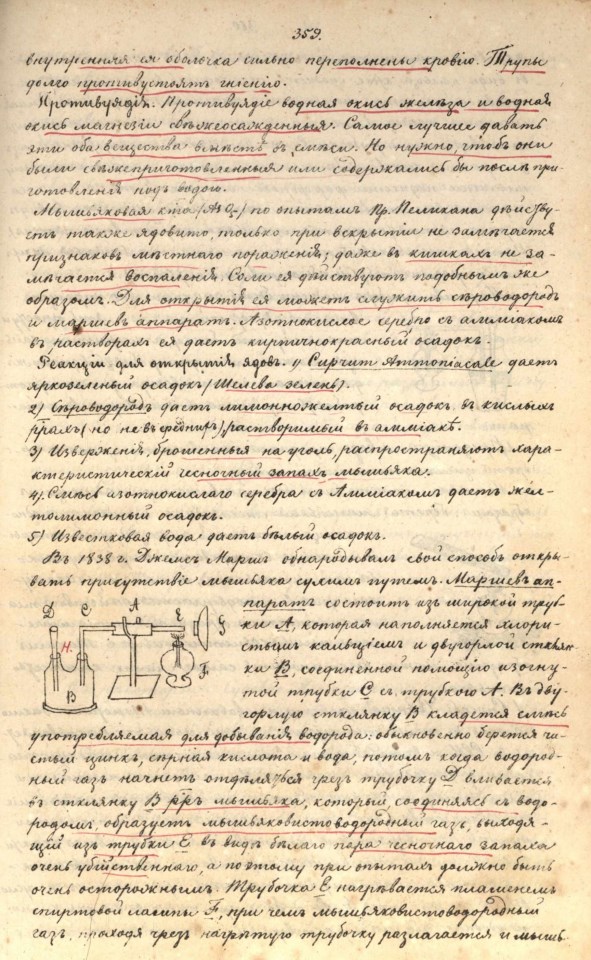 359.
внутренняя ея оболочка сильно переполнены кровію. Трупы
долго противустоятъ гніенію.
Противуядія. Противуядіе водная окись желѣза и водная
окись магнезіи свѣжеосажденныя. Самое лучшее давать
эти оба вещества вмѣстѣ въ смѣси. Но нужно, чтобъ они
были свѣжеприготовленныя или содержались бы послѣ при-
готовленія подъ водою.
Мышьяковая к-та (As O5) по опытамъ Пр. Пеликана дѣйству-
етъ также ядовито, только при вскрытіи не замѣчается
признаковъ мѣстнаго пораженія; даже въ кишкахъ не за-
мѣчается воспаленія. Соли ея дѣйствуютъ подобнымъ же
образомъ. Для открытія ея можетъ служить сѣроводородъ
и маршевъ аппаратъ. Азотнокислое серебро съ амміакомъ
въ растворахъ ея даетъ кирпичнокрасный осадокъ.
Реакціи для открытія ядовъ. 1) Cuprum Ammoniacale даетъ
яркозеленый осадокъ (Шелева зелень).
2) Сѣроводородъ даетъ лимонножелтый осадокъ въ кислыхъ
ррахъ (но не въ средних), растворимый въ амміакѣ.
3) Изверженія, брошенныя на уголь, распространяютъ хара-
ктеристическій чесночный запахъ мышьяка.
4) Смѣсь азотнокислаго серебра съ Амміакомъ даетъ жел-
толимонный осадокъ.
5) Известковая вода даетъ бѣлый осадокъ.
Въ 1838 г. Джемсъ Маршъ обнародывалъ свой способъ откры-
вать присутствіе мышьяка сухимъ путемъ. Маршевъ ап-
паратъ состоитъ изъ широкой труб-
ки А, которая наполняется хлори-
стымъ кальціемъ и двугорлой стклян-
ки В, соединенной помощію изогну-
той трубки С съ трубкою А. Въ дву-
горлую стклянку В кладется смѣсь
D C A E G
H. B F
употребляемая для добыванія водорода: обыкновенно берется чи-
стый цинкъ, сѣрная кислота и вода, потомъ когда водород-
ный газъ начнетъ отдѣляться чрезъ трубочку D вливается
въ стклянку В рръ мышьяка, который, соединяясь съ водо-
родомъ, образуетъ мышьяковистоводородный газъ, выходя-
щій изъ трубки Е въ видѣ бѣлаго пара чесночнаго запаха
очень убійственнаго, а поэтому при опытахъ должно быть
очень осторожнымъ. Трубочка Е нагрѣвается пламенемъ
спиртовой лампы F, при чемъ мышьяковистоводородный
газъ, проходя чрезъ нагрѣтую трубочку разлагается и мышь-